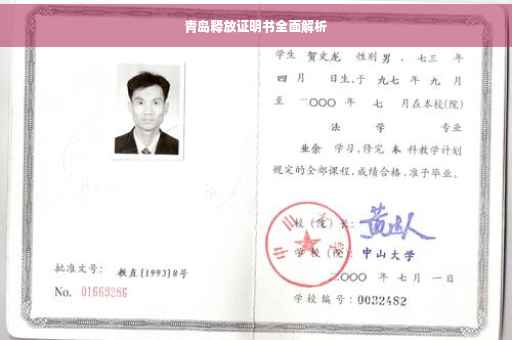 青岛释放证明书全面解析
学生 贺文龙 性别 男 ，七三 年
四 月 日生，于 九七 年 九 月
至 一〇〇〇 年 七 月在本校(院)
法 学 专业
业余 学习，修完 本 科教学计划
规定的全部课程，成绩合格，准予毕业。
校（院）长：
学校（院） 中山大学
二〇〇〇 年 七 月 一 日
批准文号： 教直[1993]8号
No. 01669286
学校编号：0032482